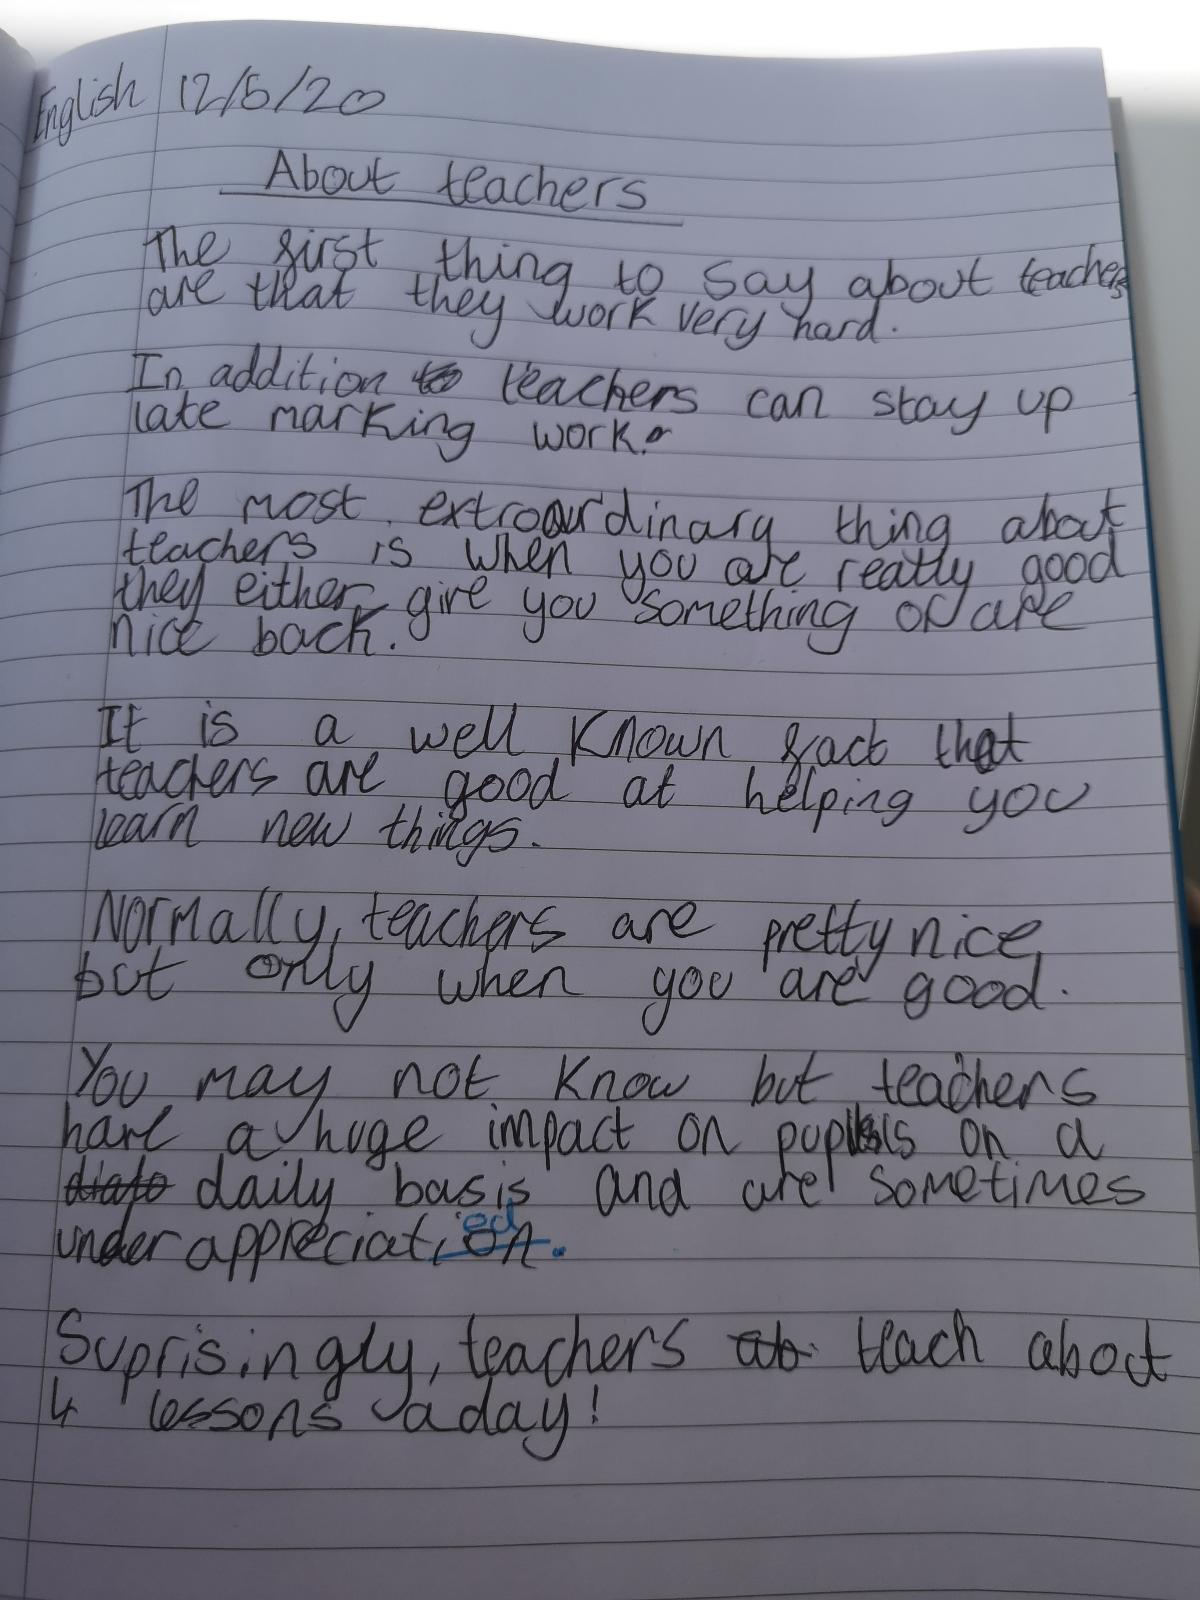 English 12/5/20
About teachers
The first thing to say about teachers
are that they work very hard.
In addition to teachers can stay up
late marking work.
The most extraordinary thing about
teachers is when you are really good
they either give you something or are
nice back.
It is a well known fact that
teachers are good at helping you
learn new things.
Normally, teachers are pretty nice
but only when you are good.
You may not know but teachers
have a huge impact on pupils on a
daily basis and are sometimes
under appreciated.
Suprisingly, teachers teach about
4 lessons a day!